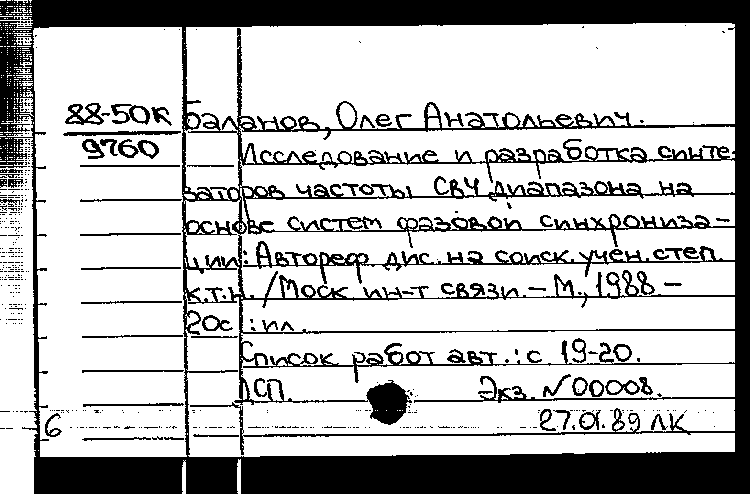 88-50к Баланов, Олег Анатольевич.
9760 Исследование и разработка синте-
заторов частоты СВЧ диапазона на
основе систем фазовой синхрониза-
ции: Автореф. дис. на соиск. учен. степ.
к.т.н. / Моск ин-т связи. - М., 1988 -
20с : ил.
Список работ авт.: с 19-20.
ДСП. Экз. N 00008.
6 27.01.89 ЛК